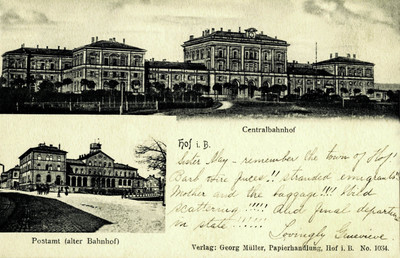 Centralbahnhof
Hof i. B.
Sister May - remember the town of Hof!
Barb wire fences!! stranded emigrants
Mother and the baggage!!! Child
scattering !!!!! And final departure
in state !!!!!!!
Lovingly Genevieve.
Postamt (alter Bahnhof)
Verlag: Georg Müller, Papierhandlung, Hof i. B. No. 1034.